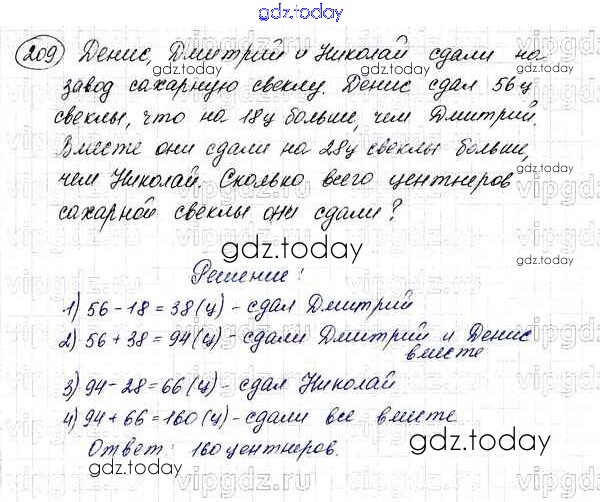 gdz.today
209 Денис, Дмитрий и Николай сдали на
завод сахарную свеклу. Денис сдал 56ц
свеклы, что на 18ц больше, чем Дмитрий.
Вместе они сдали на 28ц свеклы больше,
чем Николай. Сколько всего центнеров
сахарной свеклы они сдали?
gdz.today
Решение:
1) 56-18=38(ц)-сдал Дмитрий
2) 56+38=94(ц)-сдали Дмитрий и Денис
вместе
3) 94-28=66(ц)-сдал Николай
4) 94+66=160(ц)-сдали все вместе
Ответ: 160 центнеров.
gdz.today